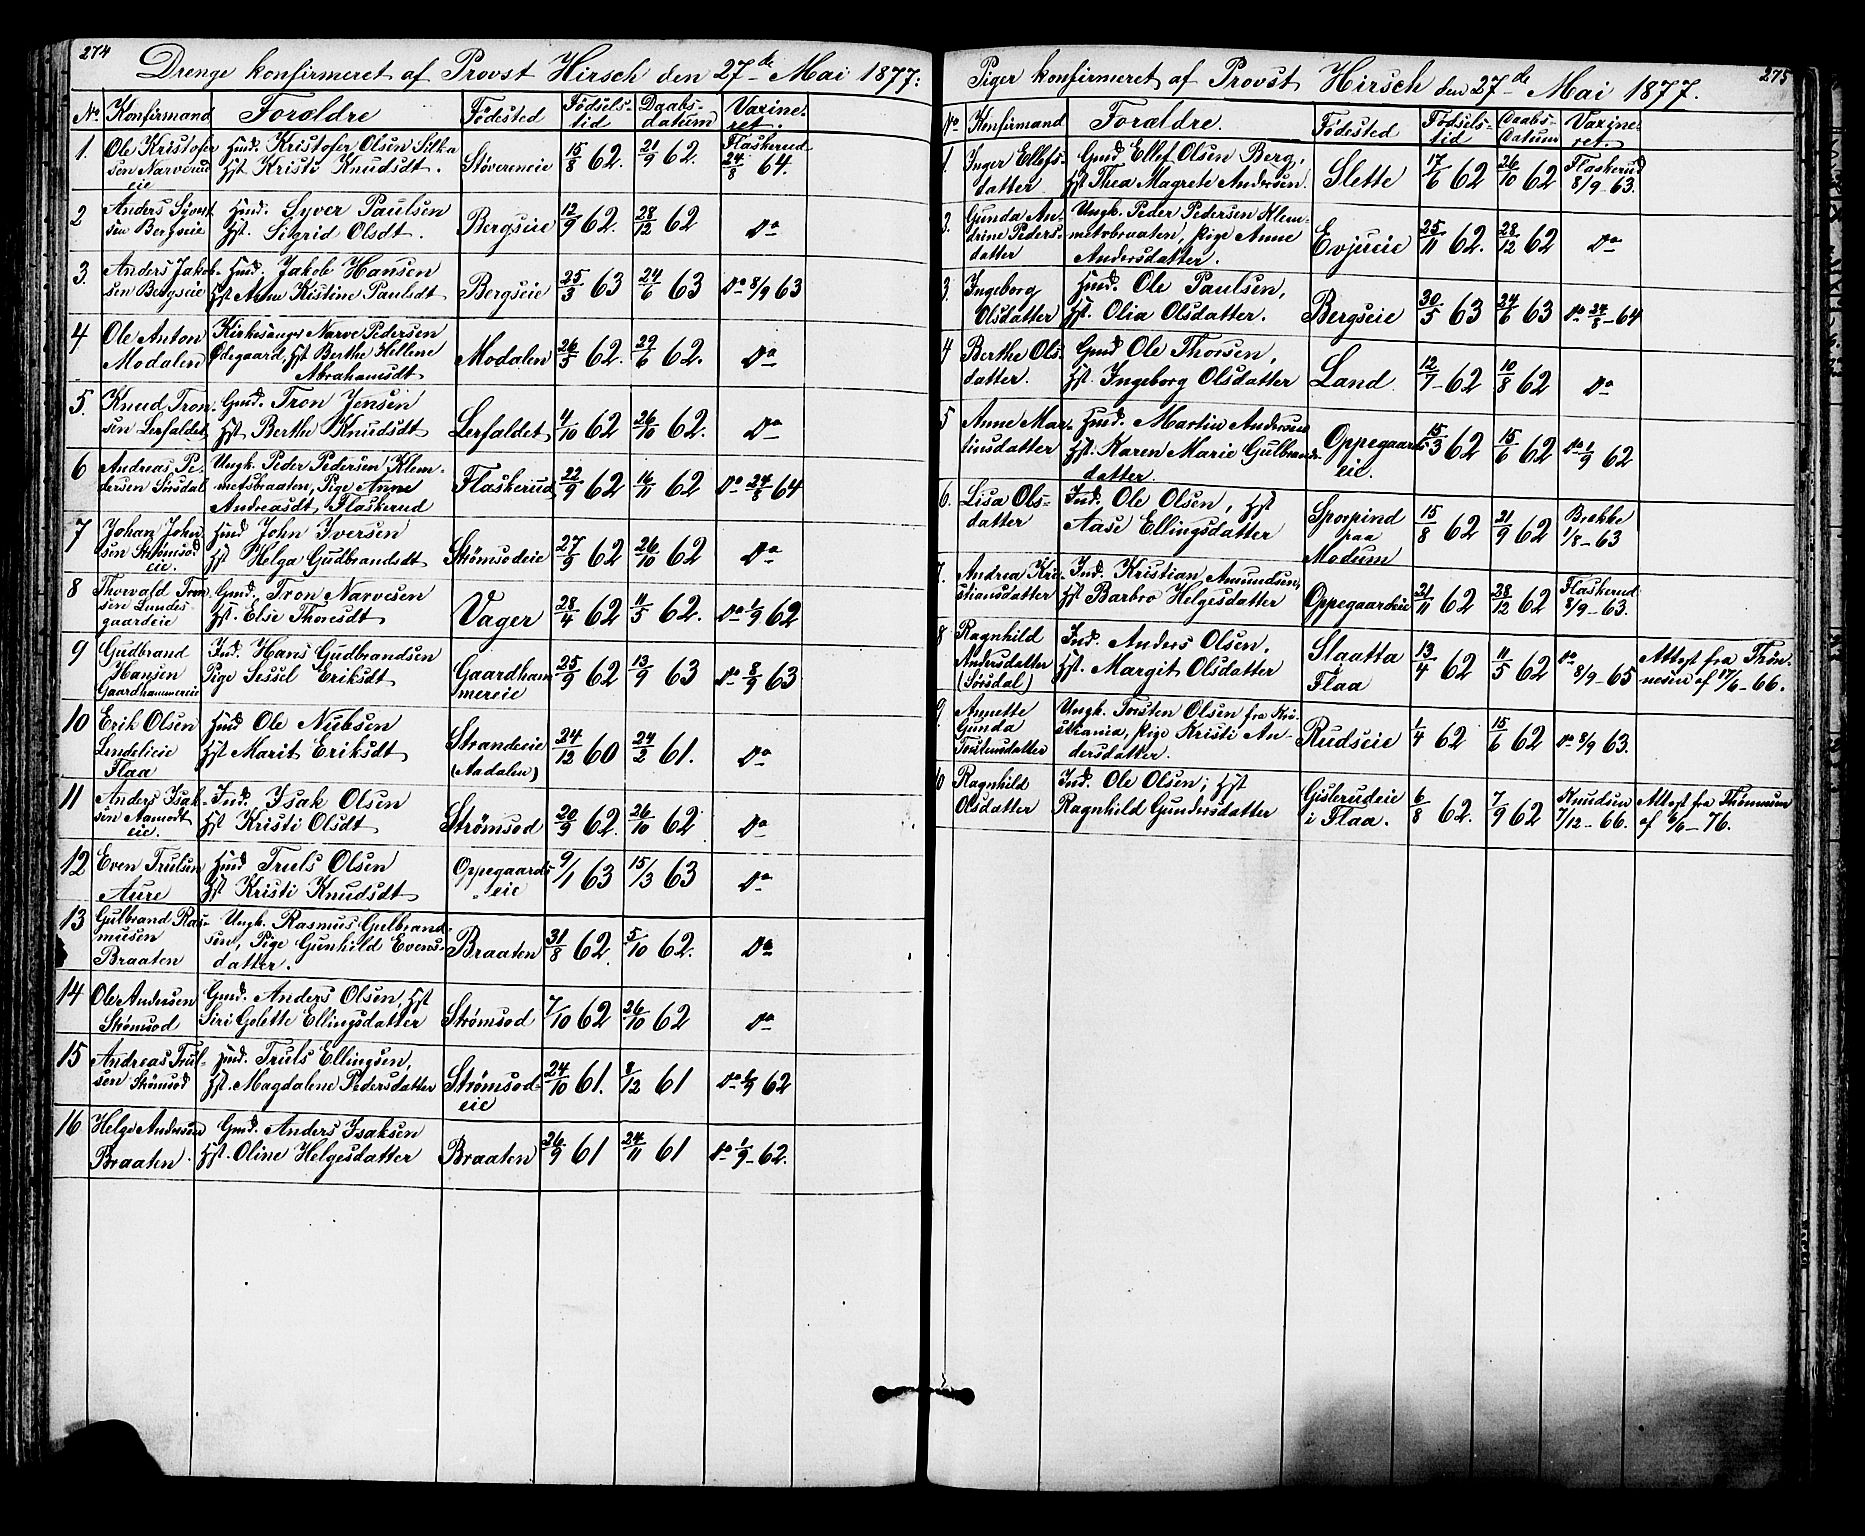 274
Drenge konfirmeret af Provst Hirsch den 27de Mai 1877:
No Konfirmand Forældre Fødested Fødselstid Daabsdatum Vaxineret.
1. Ole Kristofer Hmd. Kristofer Olsen Silka Støvereneie 15/8 62. 21/9 62. Flaskerud
sen Narverud Hst Kristi Knudsdt. 24/8 64.
eie
2 Anders Syvert Hmd. Syver Paulsen Bergseie 12/9 62. 28/12 62 Do
sen Bergseie Hst. Sigrid Olsdt.
3. Anders Jakob- Hmd. Jakob Hansen Bergseie 25/3 63 24/6 63 Do 8/9 63
sen Bergseie Hst Anne Kristine Paulsdt
4 Ole Anton Kirkesanger Narve Pedersen Modalen 26/5 62. 29/6 62. Do
Modalen Ødegaard, Hst Berthe Hellene
Abrahamsdt
5. Knud Tron- Gmd. Tron Jensen Lerfaldet 4/10 62 26/10 62. Do
sen Lerfaldet Hst Berthe Knudsdt
6 Andreas Pe- Ungk. Peder Pedersen Klem- Flaskerud 22/9 62 16/11 62 Do 24/8 64
dersen Sørsdal metsbraaten, Pige Anne
Andreasdt, Flaskerud
7 Johan John Hmd John Iversen Strømsodeie 27/9 62 26/10 62 Do
sen Strømsod Hst Helga Gudbrandsdt
eie.
8 Thorvald Tron Gmd. Tron Narvesen Vager 28/4 62 11/5 62. Do 1/9 62
sen Lundes Hst. Else Thoresdt
gaardeie
9 Gudbrand Ind. Hans Gudbrandsen Gaardham 25/9 62 13/9 63 Do 8/9 63
Hansen Pige Sessel Eriksdt mereie
Gaardhammereie
10 Erik Olsen Hmd Ole Nubsen Strandeeie 24/12 60 24/2 61. Do
Lindelieie Hst Marit Eriksdt (Aadalen)
Flaa
11 Anders Isak- Ind. Isak Olsen Strømsod 20/9 62. 26/10 62 Do
sen Aamodt Hst Kristi Olsdt
eie.
12 Even Trulsen Hmd Truls Olsen Oppegaards 9/1 63 15/3 63 Do
Aure Hst Kristi Knudsdt eie
13 Gulbrand Ras- Ungk. Rasmus Gulbrand- Braaten 31/8 62 5/10 62. Do
musen sen, Pige Gunhild Evens-
Braaten datter.
14 Ole Andersen Gmd. Anders Olsen, Hst Strømsod 7/10 62 26/10 62 Do
Strømsod Siri Golette Ellingsdatter
15 Andreas Trul- Hmd. Truls Ellingsen, Strømsod- 24/10 61. 8/12 61 Do 1/9 62
sen Strømsod Hst. Magdalene Pedersdatter eie
16 Helge Andersen Gmd. Anders Isaksen Braaten 26/9 61 24/11 61 Do 1/9 62.
Braaten. Hst. Oline Helgesdatter
275
Piger konfirmeret af Provst Hirsch den 27de Mai 1877.
No Konfirmand Forældre. Fødested Fødselstid Daabsdatum Vaxineret.
1. Inger Ellefs- Gmd Ellef Olsen Berg, Slette 17/6 62 26/10 62 Flaskerud
datter Hst Thea Magrete Andersen. 8/9-63.
2. Gunda An- Ungk. Peder Pedersen Klem- Evjueie 25/11 62. 28/12 62 Do
drine Peders- metsbraaten, Pige Anne
datter Andersdatter.
3. Ingeborg Hmd. Ole Paulsen, Bergseie 30/5 63 24/6 63 Do 24/8-64
Olsdatter Hst. Olia Olsdatter.
4 Berthe Ols- Gmd Ole Thorsen, Land. 12/7-62 10/8 62 Do
datter. Hst. Ingeborg Olsdatter
5 Anne Mar- Hmd. Martin Andersen Oppegaards 15/3 62 15/6 62 Do 1/9 62
tinsdatter Hst. Karen Marie Gulbrands- eie.
datter.
6. Lisa Ols- Ind. Ole Olsen, Hst Sporpind 15/8 62 21/9 62 Brekke
datter Aase Ellingsdatter paa 1/8-63
Modum
7. Andrea Kri- Ind. Kristian Amundsen, Oppegaardeie 21/11 62 28/12 62 Flaskerud
stiansdatter Hst Barbro Helgesdatter 8/9-63.
8 Ragnhild Ind. Anders Olsen. Slaatta 13/4 62 11/5 62 Do Attest fra Thøn-
Andersdatter Hst. Margit Olsdatter Flaa 8/9-65 nesen af 17/6-66.
(Sørsdal)
9. Annette Ungk. Torsten Olsen fra Kri- Rudseie 1/4 62 15/6 62 Do 8/9 63.
Gunda stiania, Pige Kristi An-
Torstensdatter dersdatter.
10 Ragnhild Ind. Ole Olsen; Hst Gislerudeie 6/8 62. 7/9 62 Knudsen Attest fra Thønnesen
Olsdatter Ragnhild Gundersdatter i Flaa. 7/12-66. af 6/6-76.